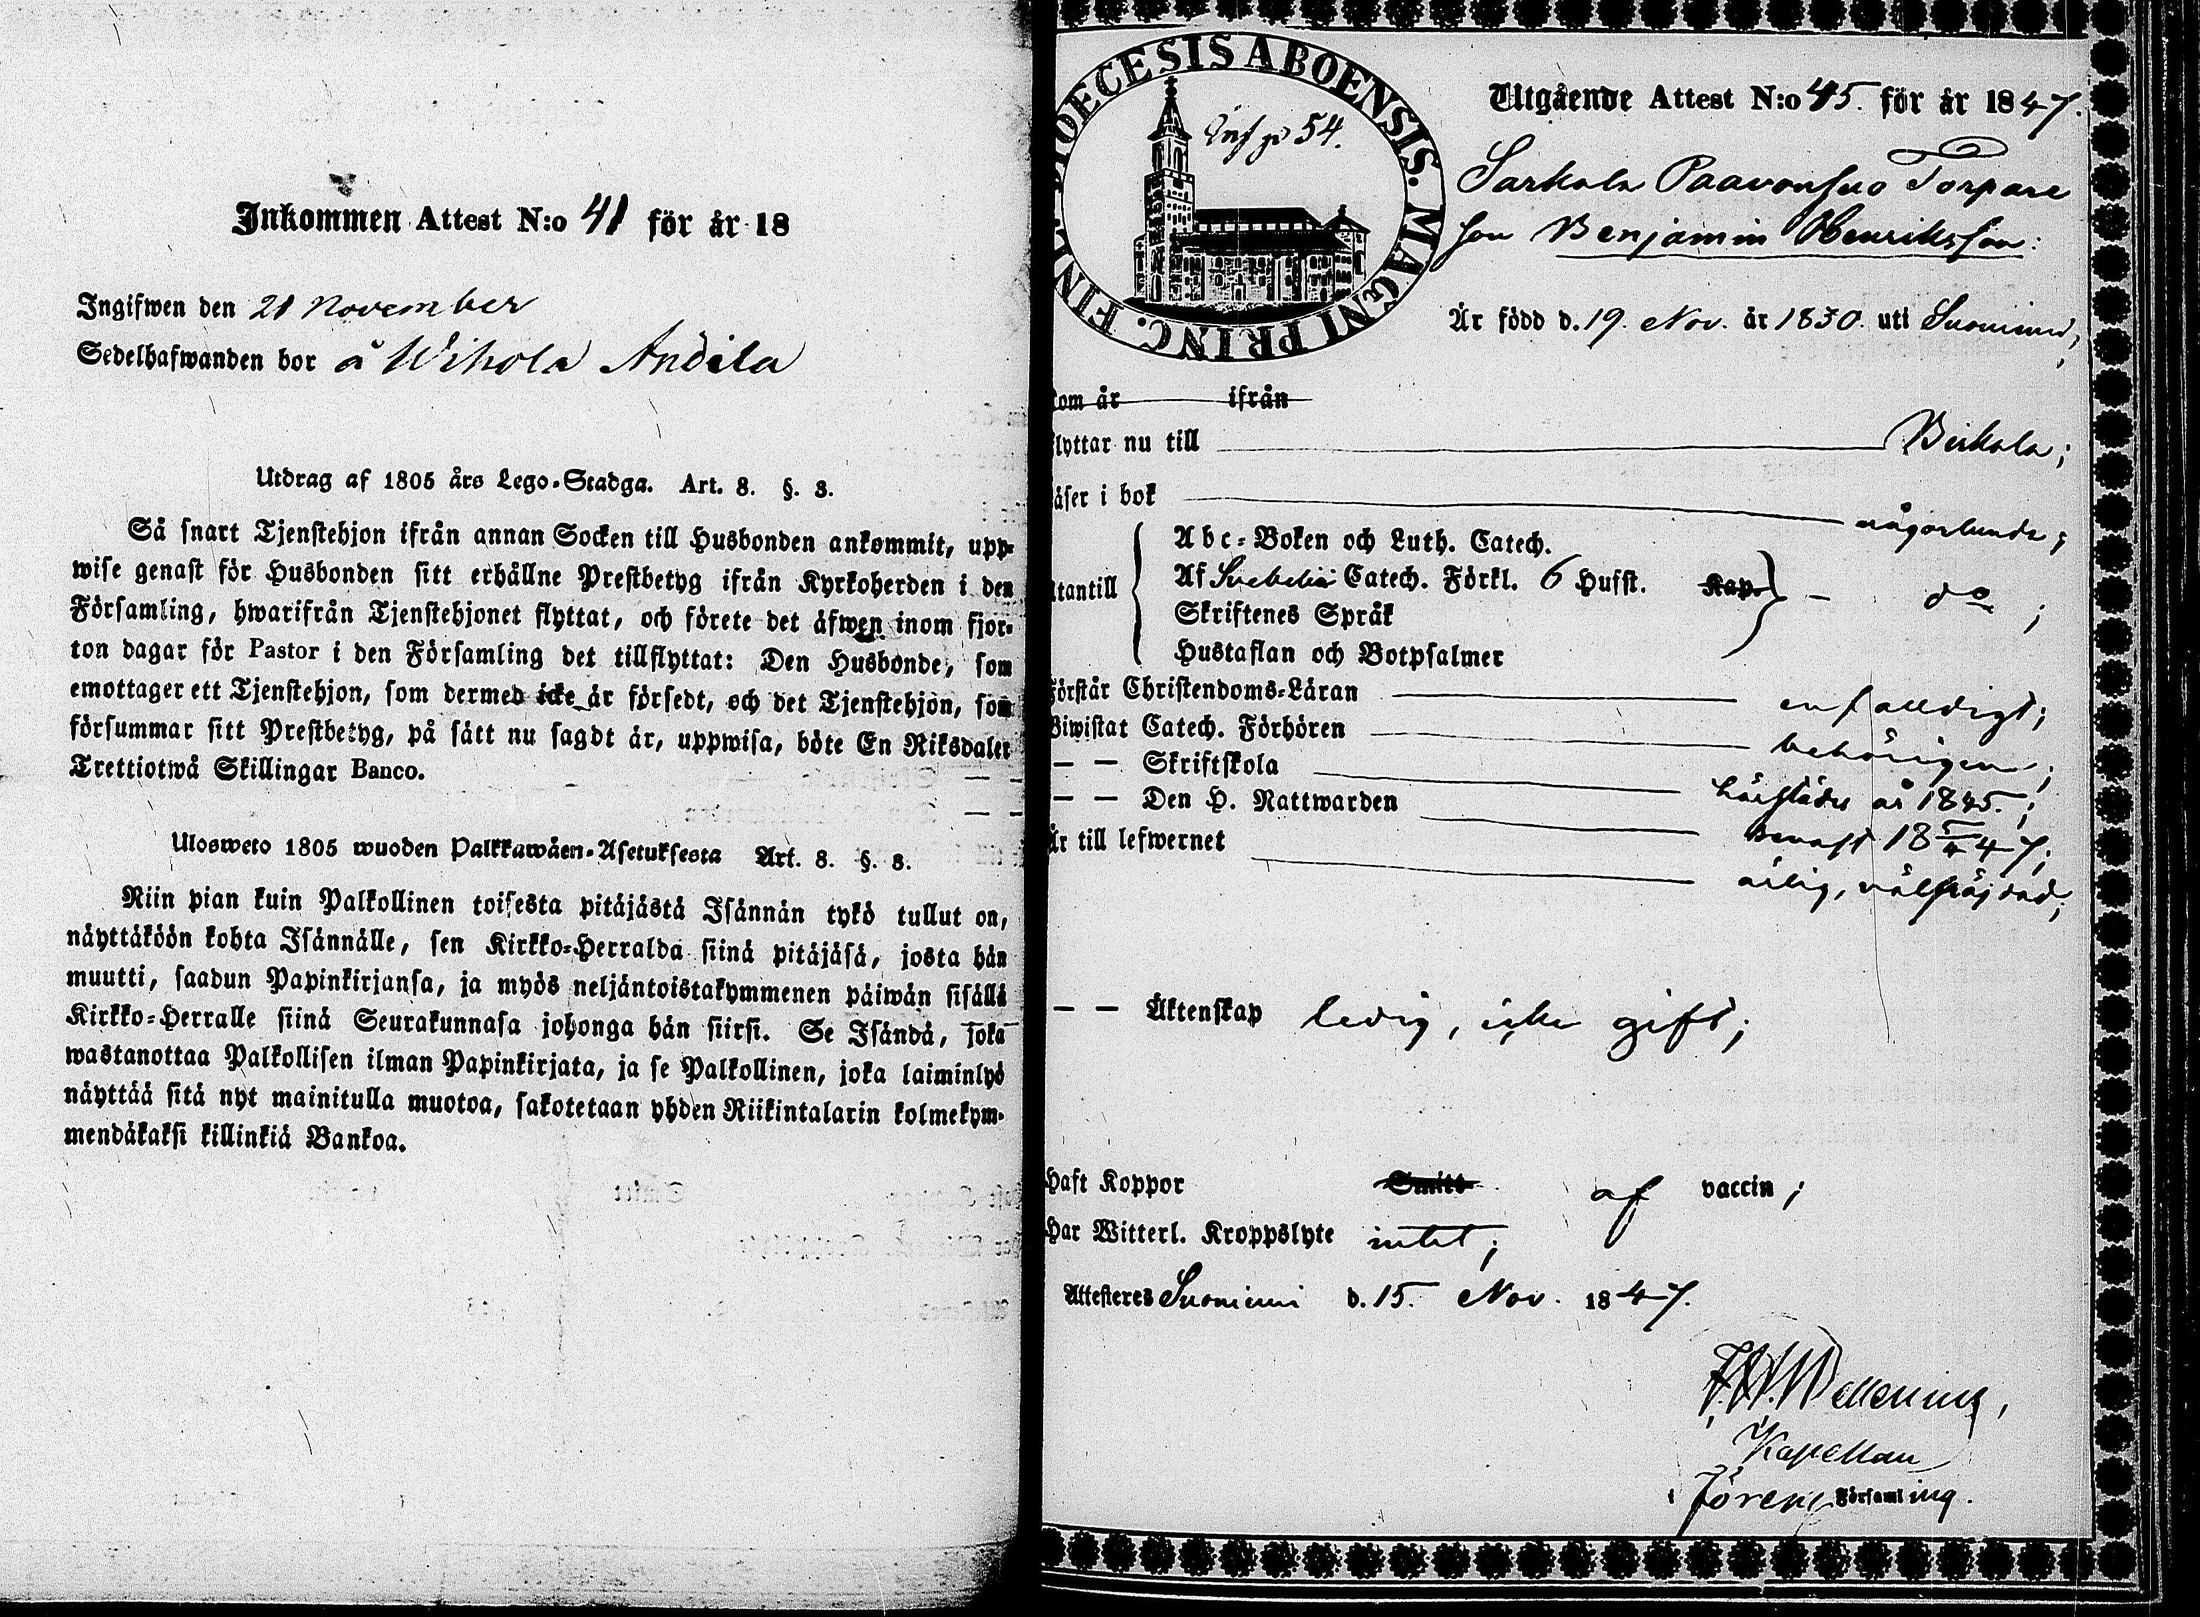 Inkommen Attest N:o 41 för år 18
Ingifwen den 21 November
Sedelhafwanden bor å Wihola Andila
Utdrag af 1805 års Lego-Stadga. Art. 8. §. 3.
Så snart Tjenstehjon ifrån annan Socken till Husbonden ankommit, upp-
wise genast för Husbonden sitt erhållne Prestbetyg ifrån Kyrkoherden i den
Församling, hwarifrån Tjenstehjonet flyttat, och förete det äfwen inom fjor-
ton dagar för Pastor i den Församling det tillflyttat: Den Husbonde, som
emottager ett Tjenstehjon, som dermed icke är försedt, och det Tjenstehjon, som
försummar sitt Prestbetyg, på sätt nu sagdt är, uppwisa, böte En Riksdaler
Trettiotwå Skillingar Banco.
Ulosweto 1805 wuoden Palkkawäen-Asetuksesta Art. 8. §. 8.
Niin pian kuin Palkollinen toisesta pitäjästä Isännän tykö tullut on,
näyttäköön kohta Isännälle, sen Kirkko-Herralda siinä pitäjäsä, josta hän
muutti, saadun Papinkirjansa, ja myös neljäntoistakymmenen päiwän sisällä
Kirkko-Herralle siinä Seurakunnasa johonga hän siirsi. Se Isändä, joka
wastanottaa Palkollisen ilman Papinkirjata, ja se Palkollinen, joka laiminlyö
näyttää sitä nyt mainitulla muotoa, sakotetaan yhden Riikintalarin kolmekym-
mendäkaksi killinkiä Bankoa.
DIOECESIS ABOENSIS. MAGNI PRINC. FINL.
Inf p 54.
Utgående Attest N:o 45. för år 1847.
Sarkola Paavonsuo Torpare
son Benjamin Henriksson:
Är född d. 19. Nov. år 1830. uti Suoniemi;
kom år ifrån
flyttar nu till Birkala;
läser i bok någorlunda;
Abc-Boken och Luth. Catech.
utantill Af Svebelii Catech. Förkl. 6 Hufst. Kap. - do;
Skriftenes Språk
Hustaflan och Botpsalmer
förstår Christendoms-Läran enfalldigt;
Biwistat Catech. Förhören behörigen;
— — Skriftskola härstädes år 1845.;
— — Den H. Nattwarden senast 18 5/4 47;
Är till lefwernet ärlig, välfräjdad;
— — Äktenskap ledig, icke gift;
Haft Koppor Smitt af vaccin;
Har Witterl. Kroppslyte intet;
Attesteres Suoniemi d. 15. Nov. 1847.
Kapellan
i Församling.